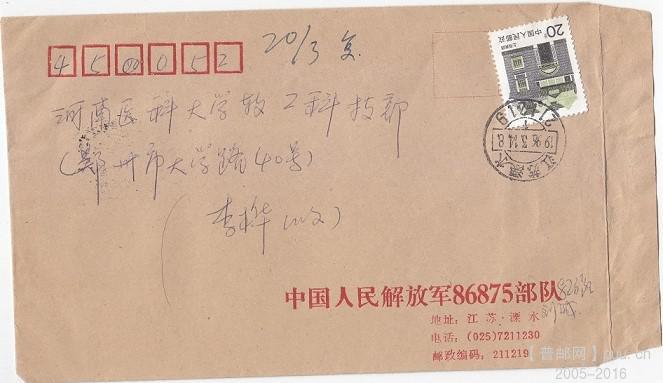 450052
20/3 复
20
中国人民邮政
上海民居
江苏溧水
1996.3.14.8
211219
河南医科大学教工科技部
(郑州市大学路40号)
李桦(收)
中国人民解放军86875部队
地址:江苏·溧水
电话:(025)7211230
邮政编码:211219
【普邮网】pu8.cn
2005-2016